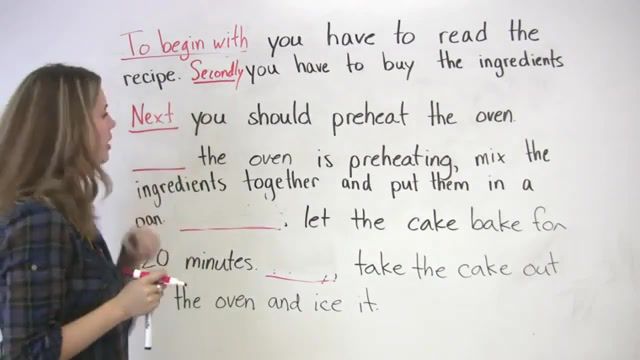 To begin with you have to read the
recipe. Secondly you have to buy the ingredients
Next you should preheat the oven.
the oven is preheating, mix the
ingredients together and put them in a
pan. , let the cake bake for
20 minutes. , take the cake out
the oven and ice it.